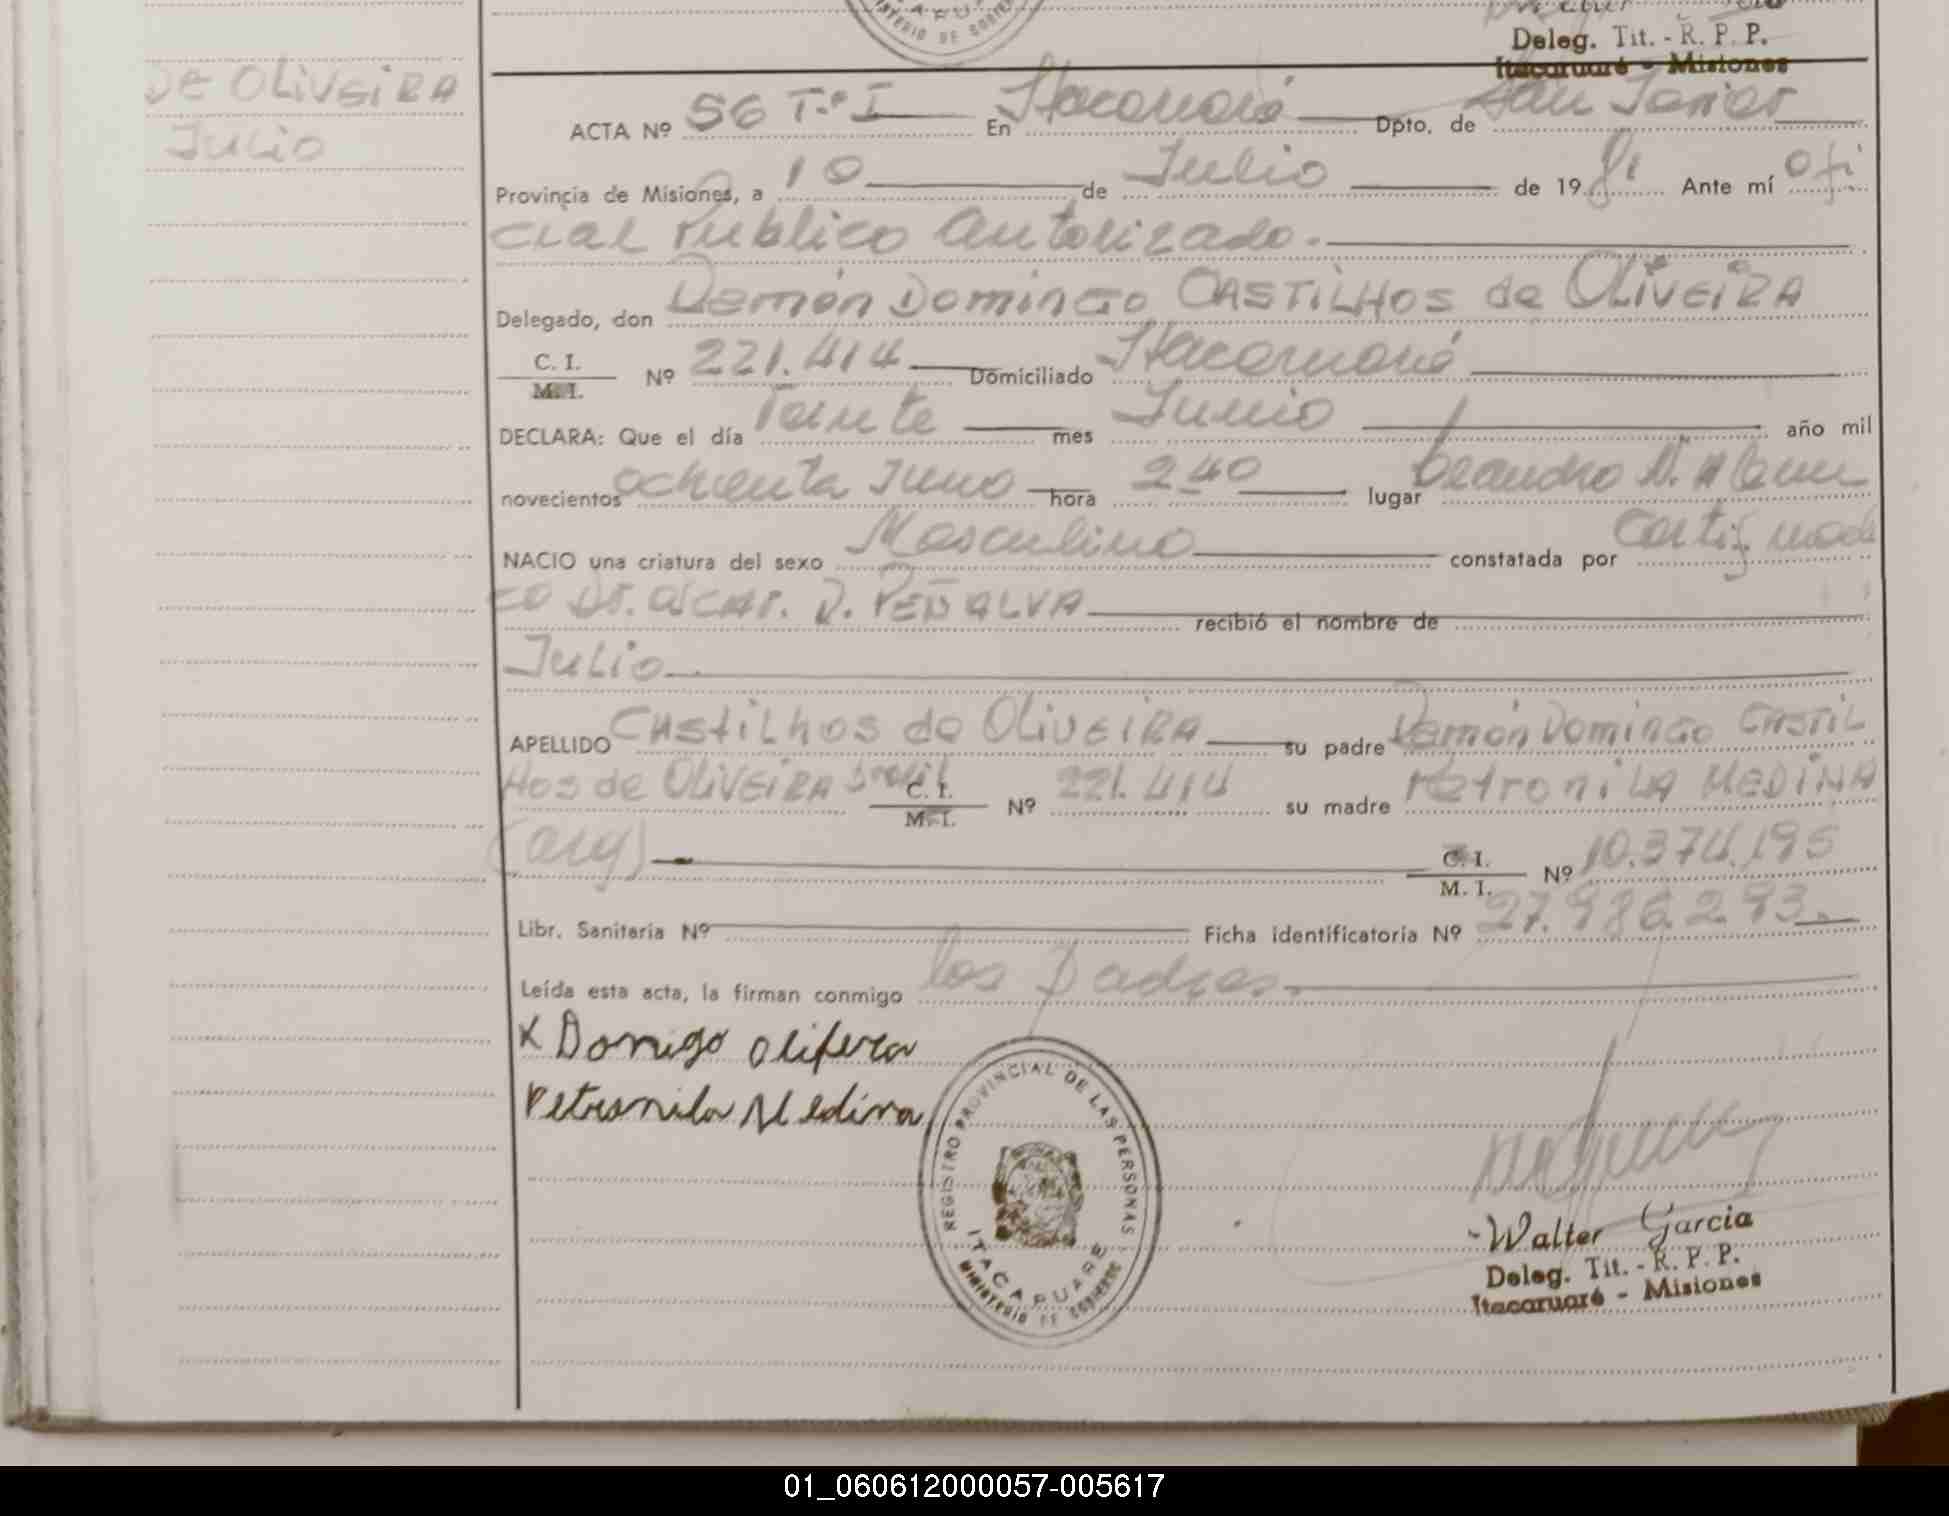 MINISTERIO DE GOBIERNO
Deleg. Tit. - R. P. P.
Itacaruaré - Misiones
DE OLIVEIRA
Julio
ACTA Nº 56 T.º I En Itacaruaré Dpto. de San Javier
Provincia de Misiones, a 10 de Julio de 19 81 Ante mí ofi
cial Publico Autorizado.
Delegado, don Ramón Domingo CASTILHOS de OLIVEIRA
C. I.
M. I.
Nº 221.414 Domiciliado Itacaruaré
DECLARA: Que el día mes Junio año mil
novecientos ochenta y uno hora 2 40 lugar Leandro N. Alem
NACIO una criatura del sexo Masculino constatada por Certif. medi
co Dr. OSCAR. R. PEÑALVA recibió el nombre de
Julio
APELLIDO CASTILHOS de OLIVEIRA su padre Ramón Domingo CASTIL
HOS de OLIVEIRA brasil C. I.
M. I.
Nº 221.414 su madre PETRONILA MEDINA
(arg) C. I.
M. I.
Nº 10.374.195
Libr. Sanitaria Nº Ficha identificatoria Nº 27.986.293.
Leída esta acta, la firman conmigo los Padres.
X Domigo olifera
Petronila Medina
REGISTRO PROVINCIAL DE LAS PERSONAS
ITACARUARE
MINISTERIO DE GOBIERNO
Walter Garcia
Deleg. Tit. - R. P. P.
Itacaruaré - Misiones
01_060612000057-005617